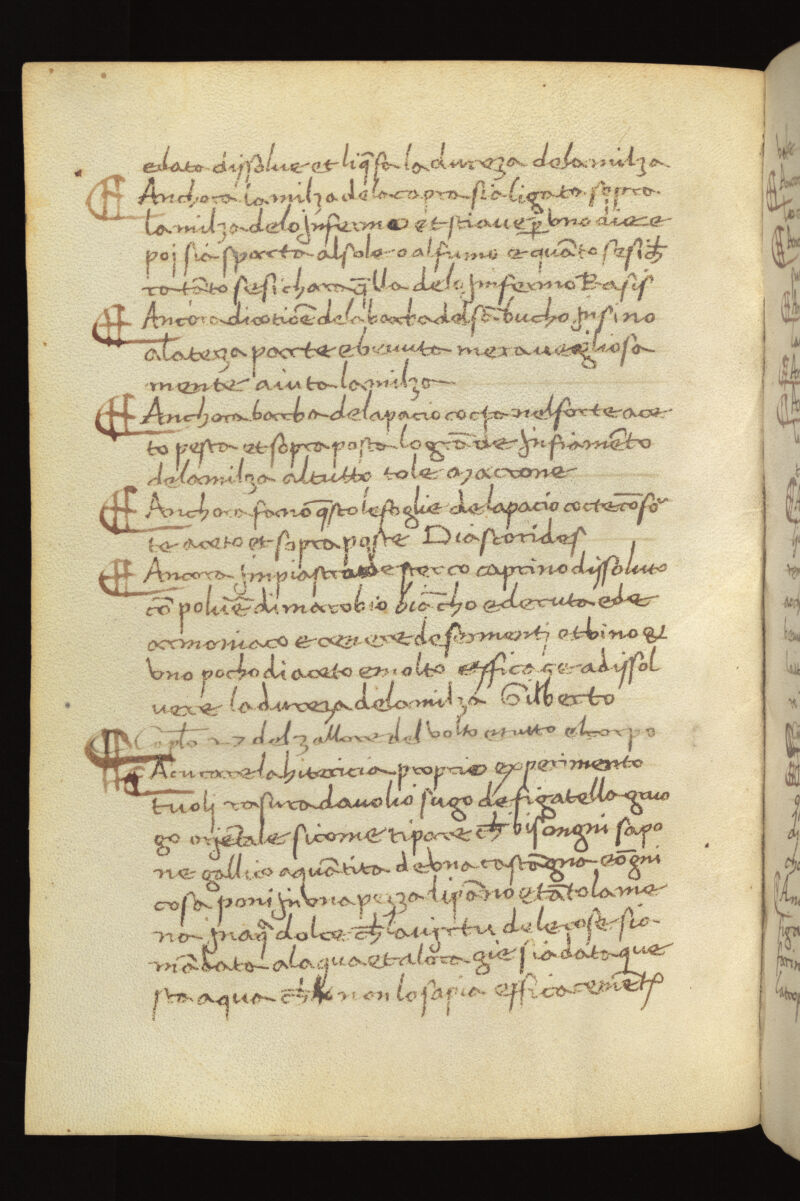 e dato dissolue et liq̄fa la dureza de la milza
Anchora la milza de la capra sia ligata sopra
la milza de lo Infermo et stia ue p̄ vno die e
poi sia sparta al sole o al fumo e quāto se sich̄
ra tāto se sichara q̄lla de lo Infermo Rasis
Ancora dicotiōe de la barba del sābucho Insino
a la terza parte e beuuta merauegliosa
mente aiuta la milza
Anchora barba de lapacio cocta nel forte ace
to pesta et sopra posta lo grāde Infiamēto
de la milza al tutto tole Macrone
Anchora fano q̄sto le foglie de lapacio cocte cō for
te aceto et sopra poste Diascorides
Ancora Impiastro de sterco caprino dissoluto
cō poluēe di marobio biācho e de ruta e de
armoniaco e cenere de sermenti et vino et
vno pocho di aceto e molto efficace a dissol
uere la dureza de la milza Gilberto
del zallore del volto e tutto el corpo
A curare la hitericia proprio experimento
tuoli rasura dauolio sugo de figatella gruo
go orientale sicome ti pare ch̄ bisongni sapo
ne gallico a quātita de vna castāgna e ōgni
cosa poni In vna pezza di pāno e tāto la me
na In aq̄a dolce ch̄ la uirtu de le cose sia
mādata a la qua et alora gie sia data que
sta aqua ch̄ non lo sapia efficacemēte